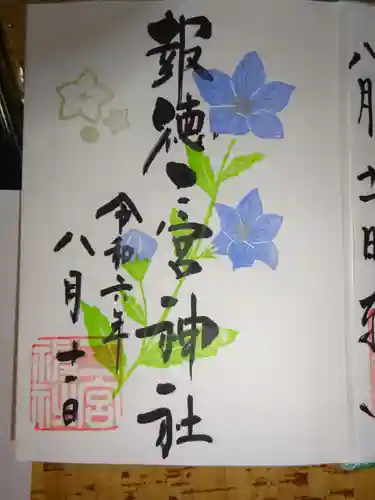 八月十一日
報徳二宮神社
令和六年
八月十一日